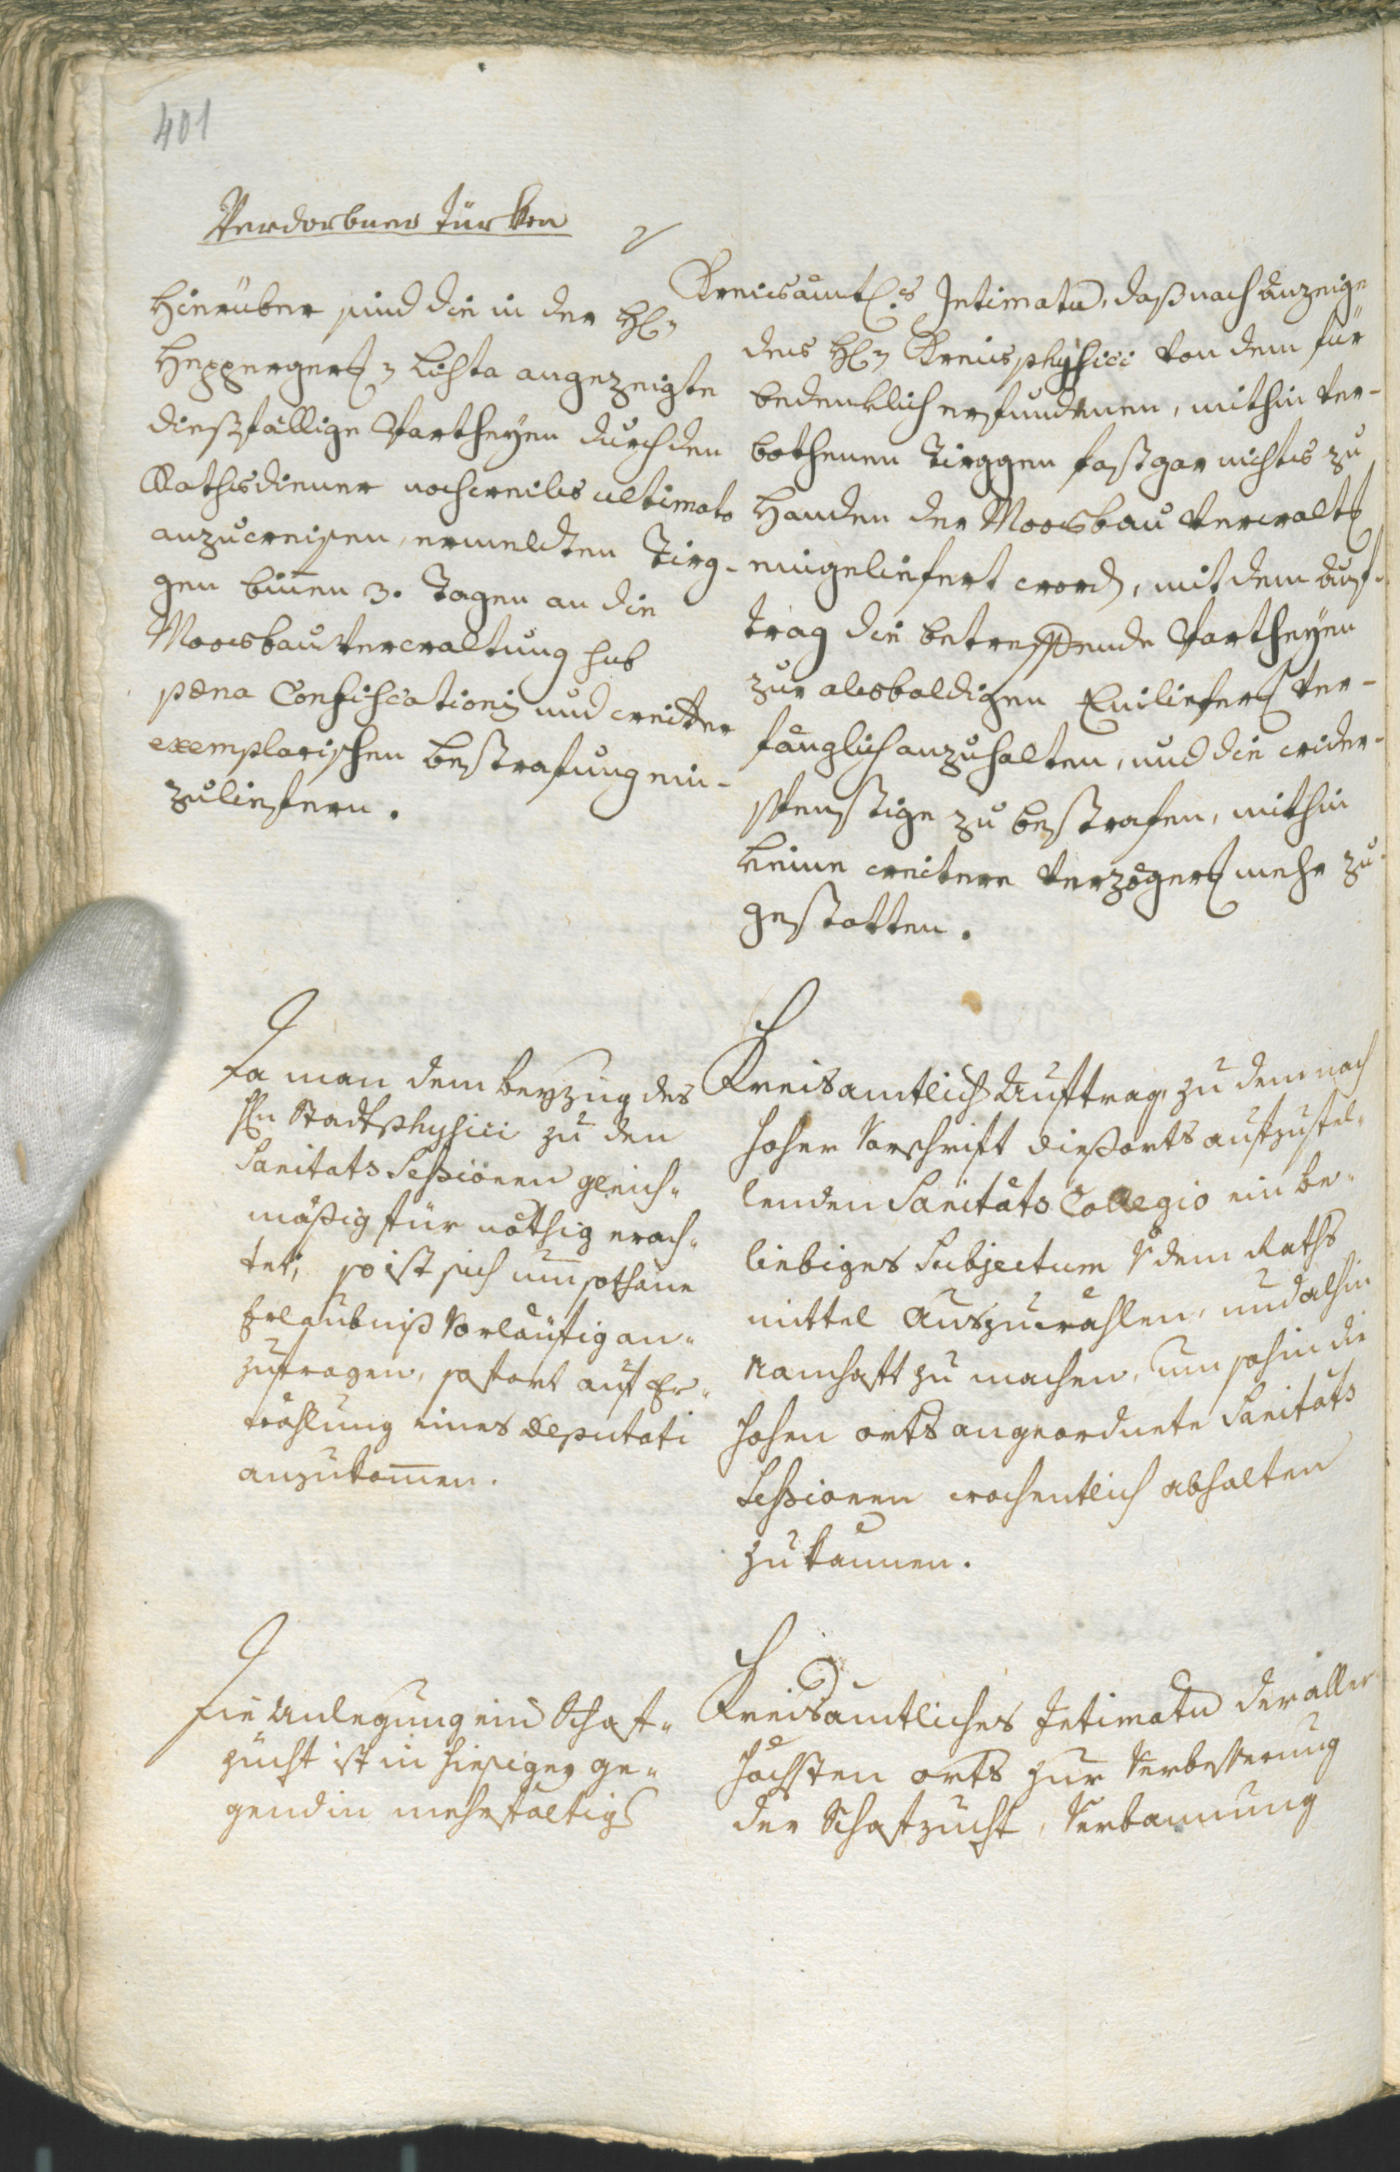 401
Verdorbner Türken
Hierüber sind die in der H.
Heppergers Lista angezeigte
dießfällige Partheyen durch den
Rathsdiener nochweils ultimato
anzuweisen, ermeldten Tirg-
gen biñen 3. Tagen an die
Moosbau Verwaltung sub
pœna Confiscationis und weitter
exemplarischen Bestrafung ein-
zuliefern.
Kreisamtl.s Intimatum, daß nach Anzeige
des H. Kreisphysici von dem für
bedenklich erfundenen, mithin ver-
bothenen Tirggen fast gar nichts zu
Handen der Moosbau Verwalt.
eingeliefert word, mit dem Auf-
trag die betreffende Partheyen
zur alsbaldigen Einlieferg ver-
fänglich anzuhalten, und die wider-
spenstige zu bestrafen, mithin
keine weitere Verzögerg mehr zu
gestatten.
Da man dem beyzug des
H. Stadtphysici zu den
Sanitats Sessionen gleich-
mäßig für nöthig erach-
tet, so ist sich um sothane
Erlaubniß vorläufig an-
zufragen, sofort auf Er-
wählung eines Deputati
anzukom̄en.
Kreisamtlich. Auftrag, zu dem nach
hoher Vorschrift dießorts aufzustel-
lenden Sanitäts Collegio ein be-
liebiges Subjectum dem Raths
mittel auszuwählen, und alhin
namhaft zu machen, um sohin die
hohen orts angeordnete Sanitäts
Sessionen wochentlich abhalten
zu können.
Die Anlegung ein Schaf-
zucht ist in hiesiger ge-
gend in mehrfältig
Kreisamtliches Intimatum der aller
höchsten orts zur Verbesserung
der Schafzucht, Verbannung